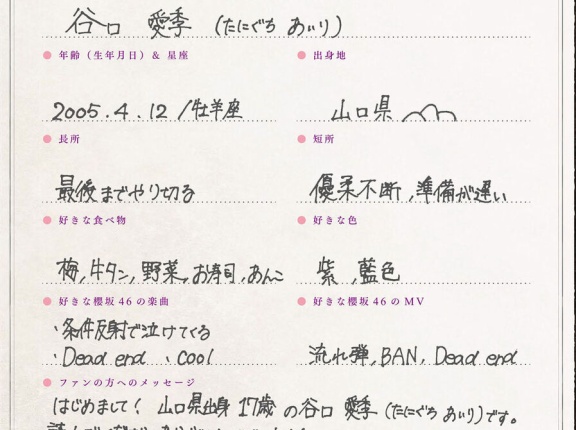 谷口 愛季 (たにぐち あいり)
年齢(生年月日)& 星座
出身地
2005.4.12 /牡羊座
山口県
長所
短所
最後までやり切る
優柔不断,準備が遅い
好きな食べ物
好きな色
梅,牛タン,野菜,お寿司,あんこ
紫,藍色
好きな櫻坂46の楽曲
好きな櫻坂46のMV
・条件反射で泣けてくる
・Dead end ・Cool
流れ弾,BAN,Dead end
ファンの方へのメッセージ
はじめまして! 山口県出身 17歳 の谷口 愛季 (たにぐち あいり)です。